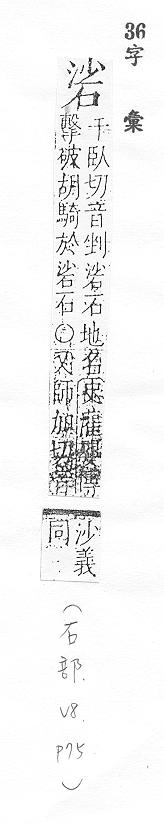 36
字彙
硰
千臥切音剉硰石地名
擊破胡騎於硰石〇又師加切音
沙義
同
(石部. V8. P75.)